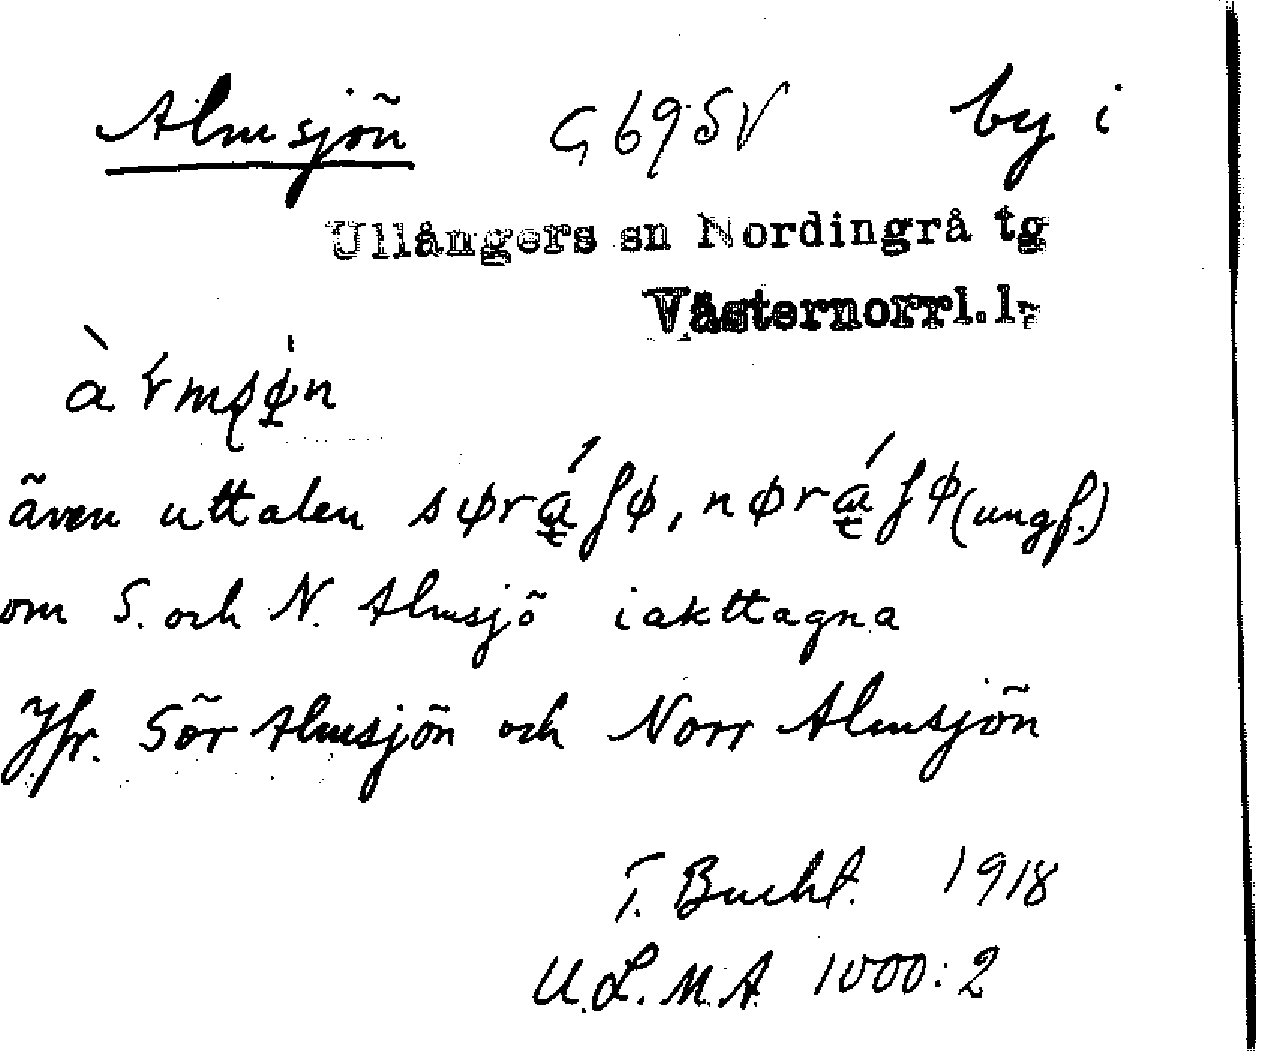 Almsjön G 69 SV by i
Ullångers sn Nordingrå tg
Västernorrl. l.
även uttalen
om S. och N. Almsjö iakttagna
Jfr. Sör Almsjön och Norr Almsjön
T. Bucht. 1918
U.L.M.A. 1000:2